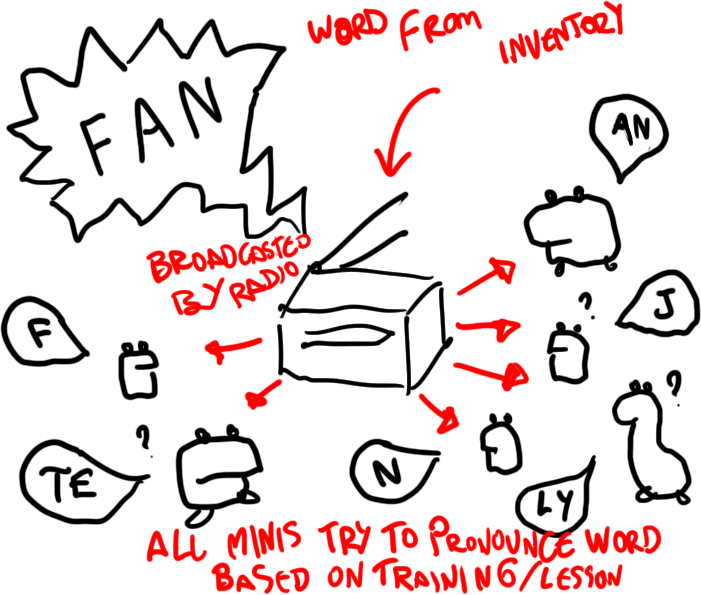 WORD FROM INVENTORY
FAN
AN
BROADCASTED
BY RADIO
?
J
F
?
?
TE
N
LY
ALL MINIS TRY TO PRONOUNCE WORD
BASED ON TRAINING/LESSON